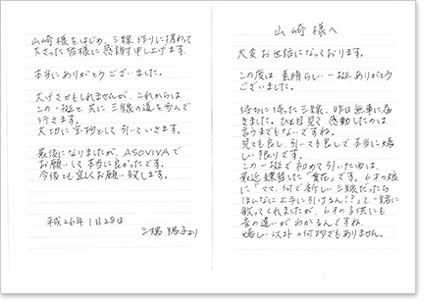 山崎様へ
大変お世話になっております。
この度は素晴らしい一挺ありがとう
ございました。
待ちに待った三線、昨日無事に届
きました。ひと目見て感動したのは
言うまでもないですね。
見ても良し、引いても良しで本当に嬉
しい限りです。
この一挺で初めて引いた曲は、
最近練習した「貴花」です。6才の娘
に「ママ、何で新しい三線だったら
ほんなに上手に引けるん!?」と一緒に
歌ってくれましたが、6才の子供にも
音の違いがわかるんですね。
嬉しい以外の何物でもありません。
山崎様をはじめ、三線作りに携わって
下さった皆様に感謝申し上げます。
本当にありがとうございました。
大げさかもしれませんが、これからは
この一挺と共に三線の道を歩んで
行きます。
大切に宝物として引いていきます。
最後になりましたが、ASOVIVAで
お願いして本当に良かったです。
今後とも宜しくお願い致します。
平成26年1月28日
より